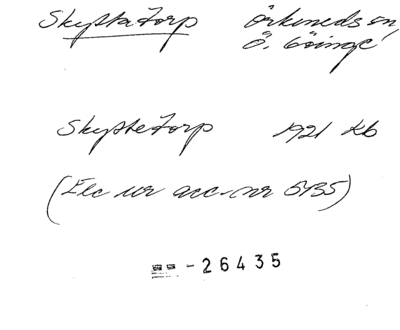 Skyttatorp Örkeneds sn,
Ö. Göinge
Skyttetorp 1921 Kb
(Exc ur acc-nr 5135)
-26435